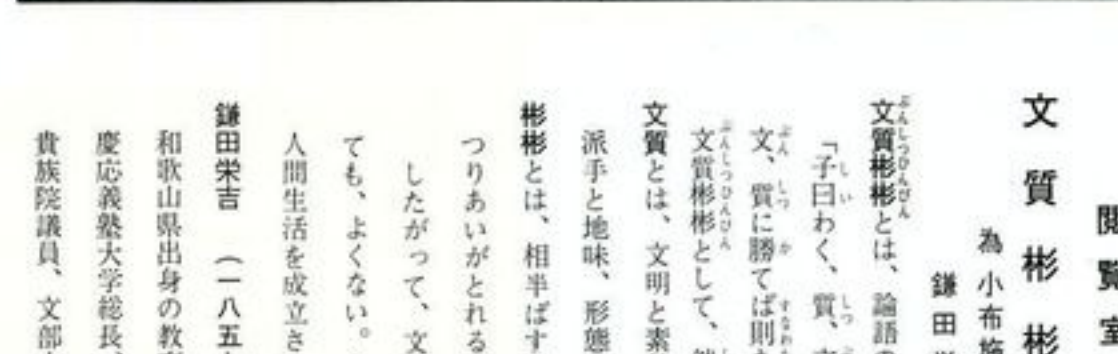 閲覧室
文質彬彬
為小布施
鎌田
文質彬彬とは、論語
「子曰わく、質、
文、質に勝てば則
文質彬彬として、
文質とは、文明と素
派手と地味、形態
彬彬とは、相半ばす
つりあいがとれる
したがって、文
ても、よくない。
人間生活を成立さ
鎌田栄吉 (一八五
和歌山県出身の教
慶応義塾大学総長、
貴族院議員、文部